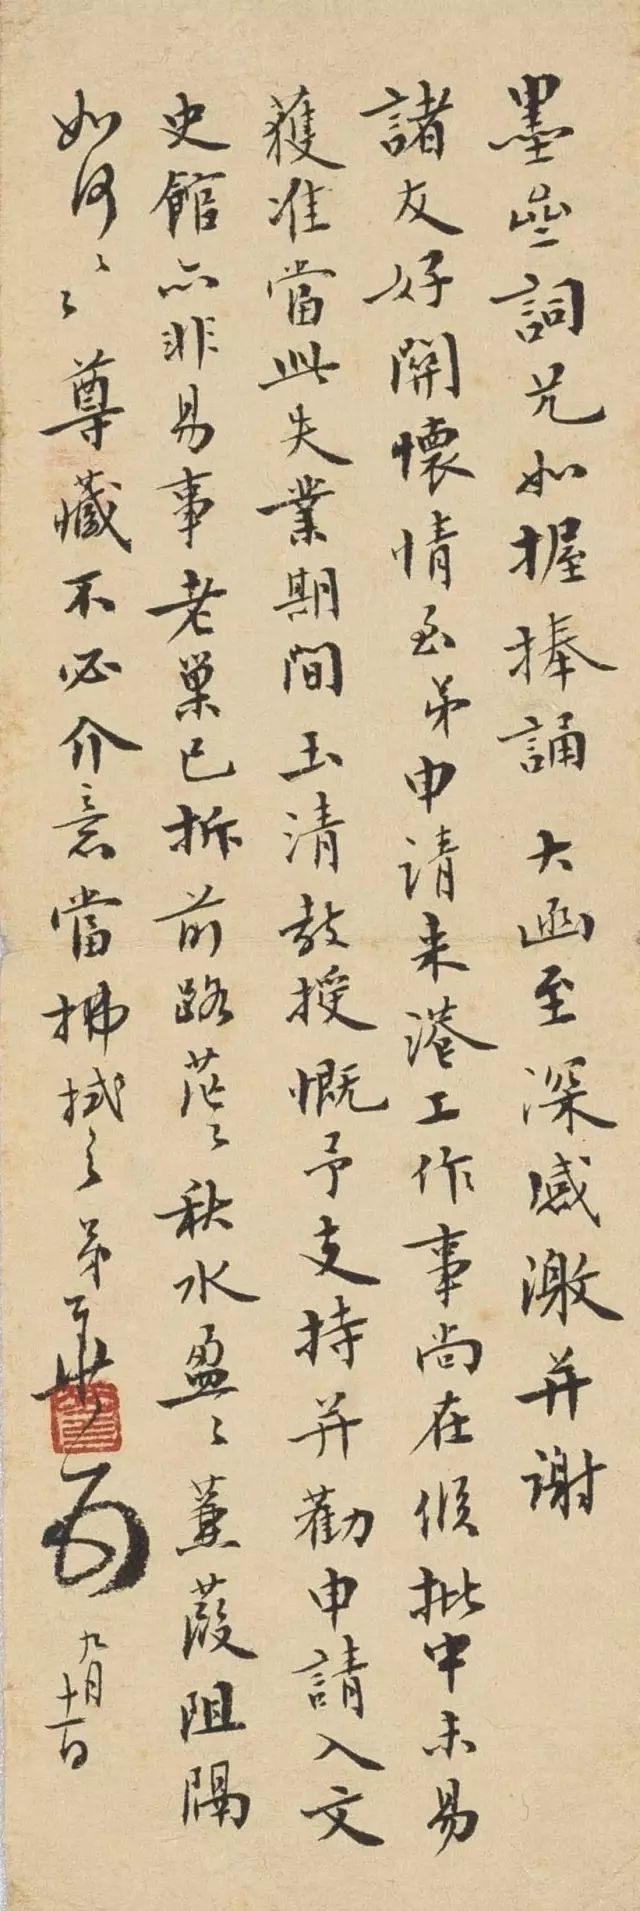 墨齋詞兄如握捧誦 大函至深感激并謝
諸友好關懷情至弟申請来港工作事尚在候批中未易
獲准當此失業期間玉清教授慨予支持并勸申請入文
史館亦非易事老巢已拆前路茫々秋水盈々蒹葭阻隔
如何々々尊藏不必介意當拂拭之弟
九月十一日